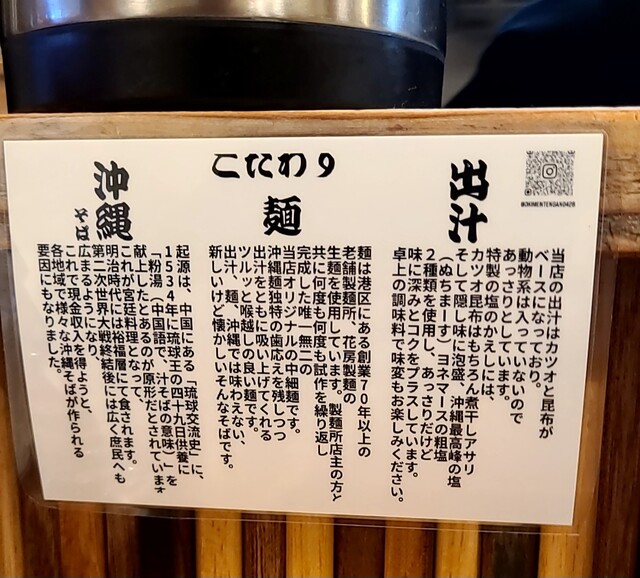 こだわり
@OKIMENTENGANO428
出汁
当店の出汁はカツオと昆布が
ベースになっており、
動物系は入っていないので
あっさりとしています。
特製の塩のかえしには、
カツオ昆布はもちろん煮干しアサリ
そして隠し味に泡盛、沖縄最高峰の塩
（ぬちまーす）ヨネマースの粗塩
２種類を使用し、あっさりだけど
味に深みとコクをプラスしています。
卓上の調味料で味変もお楽しみください。
麺
麺は港区にある創業７０年以上の
老舗製麺所、花房製麺の
生麺を使用しています。製麺所店主の方と
共に何度も何度も試作を繰り返し
完成した唯一無二の
当店オリジナルの中細麺です。
沖縄麺独特の歯応えを残しつつ
出汁をともに吸い上げてくれる
ツルッと喉越しの良い麺です。
出汁、麺、沖縄では味わえない、
新しいけど懐かしいそんなそばです。
沖縄そば
起源は、中国にある「琉球交流史」に、
１５３４年に琉球王の四十九日供養に
「粉湯（中国語で、汁そばの意味）」を
献上したとあるのが原形だとされています
これが宮廷料理となって、
明治時代には裕福層にて食されます。
第二次世界大戦終結後には広く庶民へも
広まるようになり、
これで現金収入を得ようと、
各地域で様々な沖縄そばが作られる
要因にもなりました。